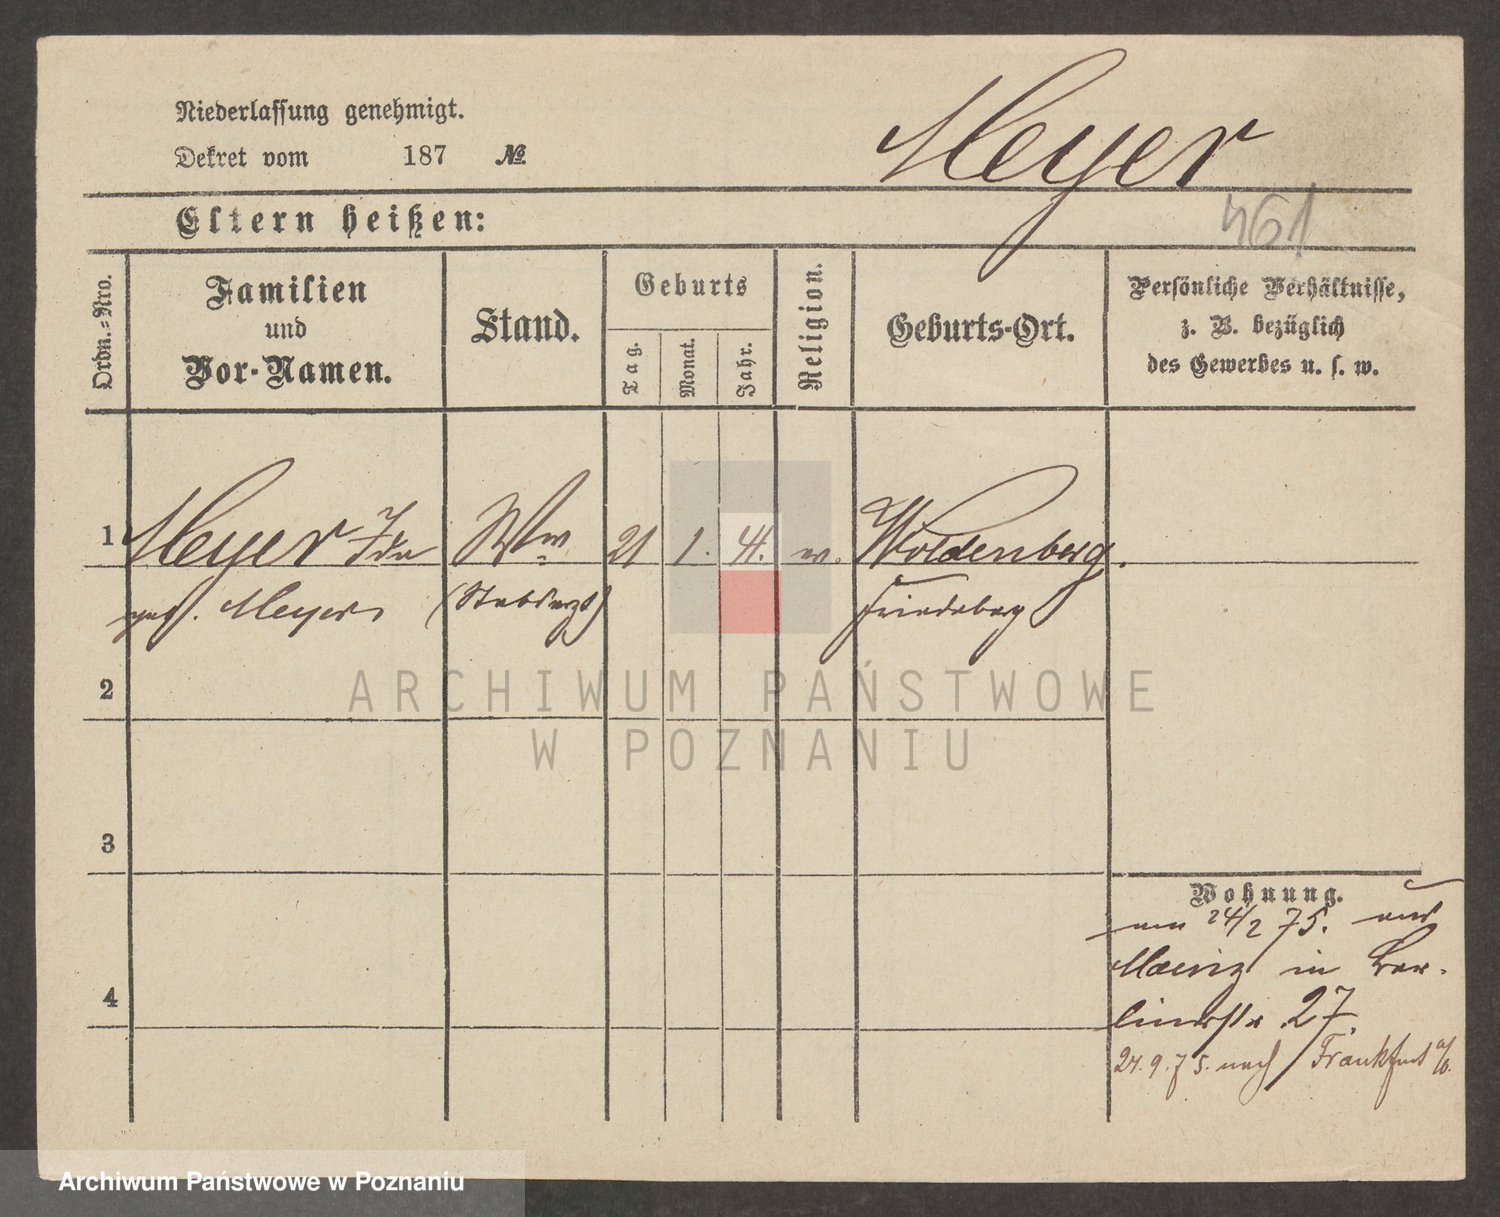 Niederlassung genehmigt.
Dekret vom 187 №
Meyer
461
Eltern heißen:
Ordn.-Nro.
Familien
und
Vor-Namen.
Stand.
Geburts
Tag.
Monat.
Jahr.
Religion.
Geburts-Ort.
Persönliche Verhältnisse,
z. B. bezüglich
des Gewerbes u. s. w.
1 Meyer Ida Ww 21 1. 41. Woldenberg.
geb. Meyer (Stabsarzt) Friedeberg
2
3
4
Wohnung.
am 24/2 75. aus
Mainz in Ber-
linerstr 27.
24. 9. 75. nach Frankfurt a/O.
ARCHIWUM PAŃSTWOWE
W POZNANIU
Archiwum Państwowe w Poznaniu